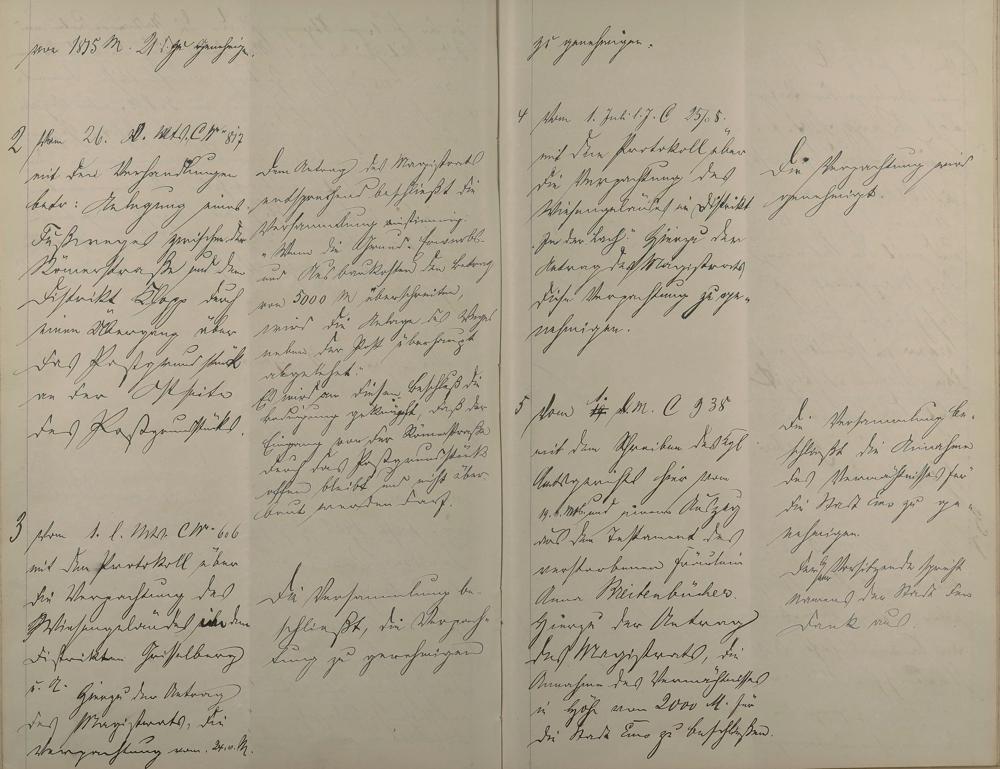 von 1875 M. 21 ₰ zu genehmigen.
2 Vom 26. v. Mts. C Nr. 817
mit den Verhandlungen
betr: Anlegung eines
Fußweges zwischen der
Römerstraße und dem
Distrikt Klopp durch
einen Übergang über
das Postgrundstück
an der Ostseite
des Postgrundstücks.
Dem Antrag des Magistrats
entsprechend beschließt die
Versammlung einstimmig:
"Wenn die Grund-Erwerbs-
und Ausbaukosten den Betrag
von 5000 M überschreiten,
wird die Anlage des Weges
neben der Post überhaupt
abgelehnt."
Es wird an diesen Beschluß die
Bedingung geknüpft, daß der
Eingang von der Römerstraße
durch das Postgrundstück
offen bleibt und nicht über-
baut werden darf.
3 Vom 1. l. Mts. C Nr. 606
mit dem Protokoll über
die Verpachtung des
Wiesengeländes in den
Distrikten Geisselberg
u. A. Hierzu der Antrag
des Magistrats, die
Verpachtung vom 24. v. M.
Die Versammlung be-
schließt, die Verpach-
tung zu genehmigen
zu genehmigen.
4 Vom 1. Juli l. J. C 25/8.
mit dem Protokoll über
die Verpachtung des
Wiesengeländes im Distrikt
"In der Lach." Hierzu der
Antrag des Magistrats
diese Verpachtung zu ge-
nehmigen.
Die Verpachtung wird
genehmigt.
5 Vom d. M. C 938
mit dem Schreiben des Kgl
Amtsgerichts hier vom
und einem Auszug
aus dem Testament des
verstorbenen Fräulein
Anna Breitenbücher.
Hierzu der Antrag
des Magistrats, die
Annahme des Vermächtnisses
in Höhe von 2000 M. für
die Stadt zu beschließen.
Die Versammlung be-
schließt die Annahme
des Vermächtnisses für
die Stadt zu ge-
nehmigen.
Der Vorsitzende spricht
Namens der Stadt den
Dank aus.